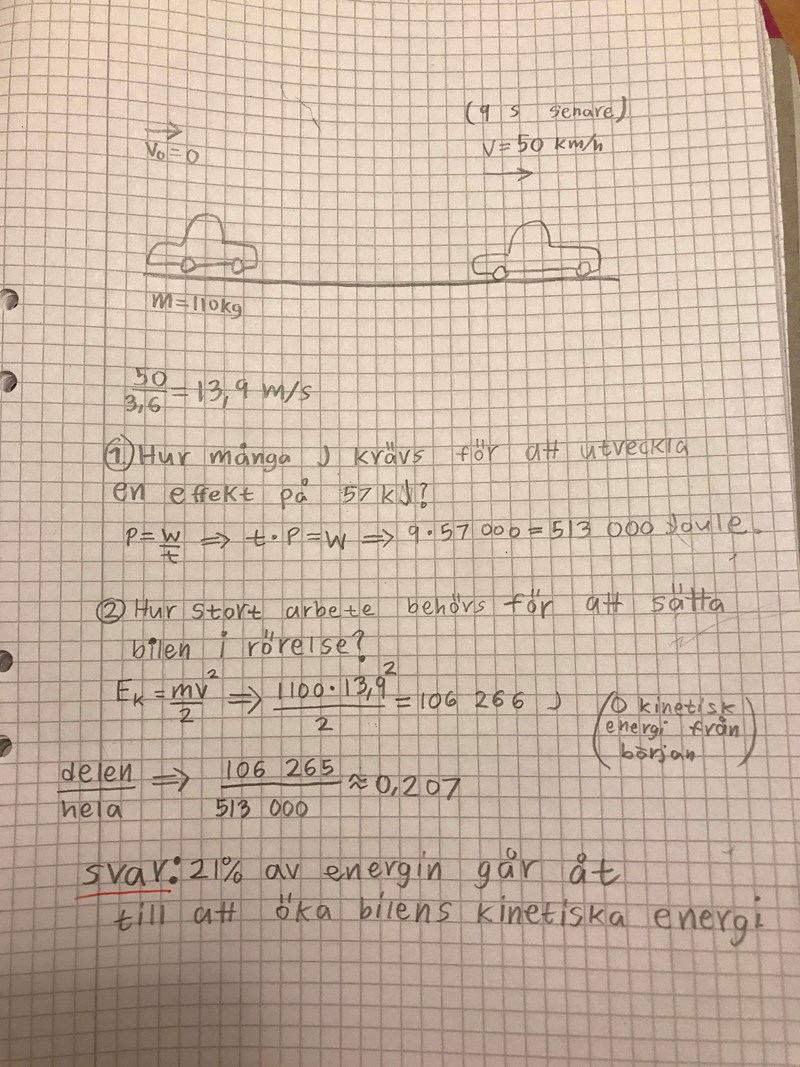 (9 s senare)
V₀=0
V=50 km/h
m=110kg
50/3,6 = 13,9 m/s
① Hur många J krävs för att utveckla
en effekt på 57 kJ?
P=W/t ⇒ t·P=W ⇒ 9·57 000=513 000 Joule.
② Hur stort arbete behövs för att sätta
bilen i rörelse?
Eₖ=mv²/2 ⇒ 1100·13,9²/2 = 106 266 J
(0 kinetisk
energi från
början)
delen/hela ⇒ 106 265/513 000 ≈ 0,207
svar: 21% av energin går åt
till att öka bilens kinetiska energi